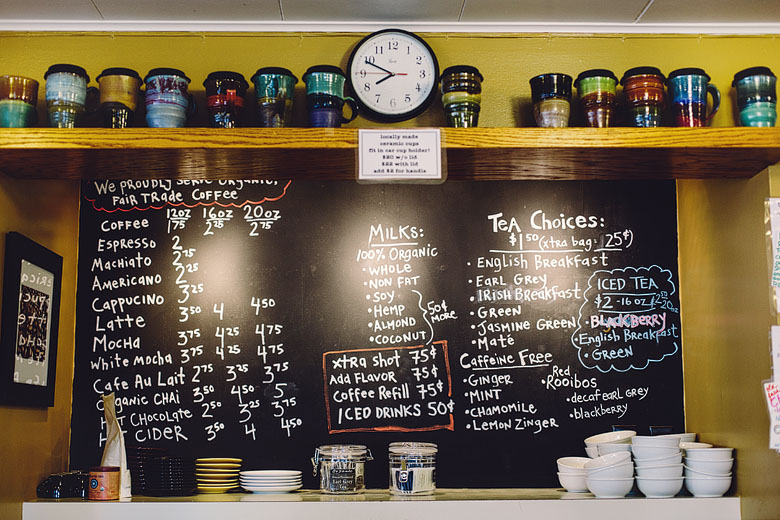 12
11
1
10
2
9
3
8
4
7
5
6
locally made
ceramic cups
fit in car cup holder!
$20 w/o lid
$22 with lid
add $2 for handle
We Proudly Serve Organic,
Fair Trade Coffee
12oz 16oz 20oz
Coffee 1.75 2.25 2.75
Espresso 2
Machiato 2.25
Americano 2.25
Cappucino 3.25
Latte 3.50 4 4.50
Mocha 3.75 4.25 4.75
White Mocha 3.75 4.25 4.75
Cafe Au Lait 2.75 3.25
Organic Chai 3.50 4.50 5
Hot Chocolate 2.50 3.25 3.75
Hot Cider 3.50 4 4.50
Milks:
100% Organic
• Whole
• Non Fat
• Soy
• Hemp
• Almond
• Coconut
50¢
more
xtra shot 75¢
Add Flavor 75¢
Coffee Refill 75¢
Iced Drinks 50¢
Tea Choices:
$1.50 (xtra bag: 25¢)
• English Breakfast
• Earl Grey
• Irish Breakfast
• Green
• Jasmine Green
• Maté
Caffeine Free
• Ginger
• Mint
• Chamomile
• Lemon Zinger
• Red
Rooibos
• decaf earl grey
• blackberry
Iced Tea
$2 - 16 oz
• Blackberry
English Breakfast
• Green
Earl Grey
Tea